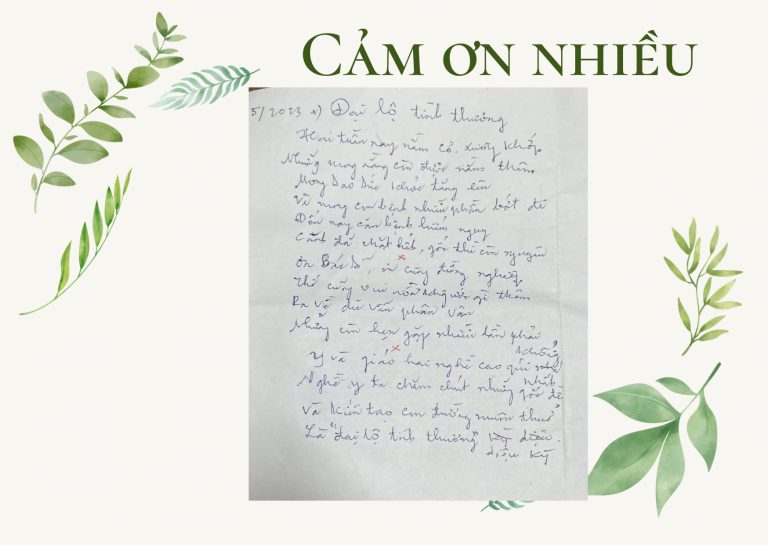 CẢM ƠN NHIỀU
5/2023 Đại lộ tình thương
Hai tuần nay nằm Cơ, xương khớp
Những mong rằng còn được nằm thêm
Mong Dao Đức khỏe tăng lên
Và mong cơn bệnh nhiều phần bớt đi
Đến nay căn bệnh hiểm nguy
Cành đã chặt hết, gốc thì còn nguyên
Ơn Bác Sĩ, ơn cùng đồng nghiệp
Thế cũng vui rồi gì thêm
Ra về dù vẫn phân vân
Nhưng còn hẹn gặp nhiều lần phải không
Y và giáo hai nghề cao quí nhất
Nghề y ta chăm chút những gốc đề
Và kiến tạo con đường muôn thuở
Là "đại lộ tình thương" diệu kỳ